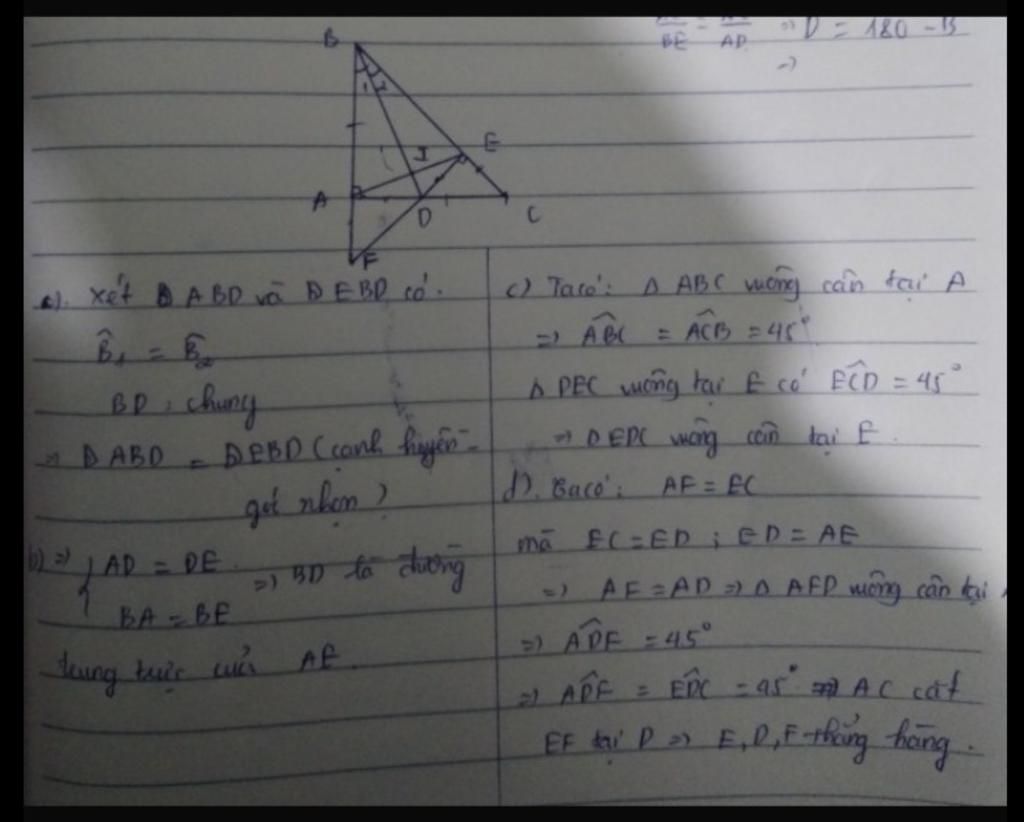 BE AD => D = 180 - B
=>
B
1 2
I
E
A
D
C
F
a). Xét Δ ABD và Δ EBD có.
B̂₁ = B̂₂
BD : chung
=> Δ ABD = Δ EBD (cạnh huyền -
gót nhọn)
b) => { AD = DE => BD là đường
BA = BE
trung trực của AE.
c) Ta có: Δ ABC vuông cân tại A
=> ABC = ACB = 45°
Δ DEC vuông tại E có ECD = 45°
=> Δ EDC vuông cân tại E.
d). Ta có: AF = EC
mà EC = ED ; ED = AE
=> AF = AD => Δ AFD vuông cân tại
=> ADF = 45°
=> ADF = EDC = 45° => AC cắt
EF tại D => E, D, F thẳng hàng.